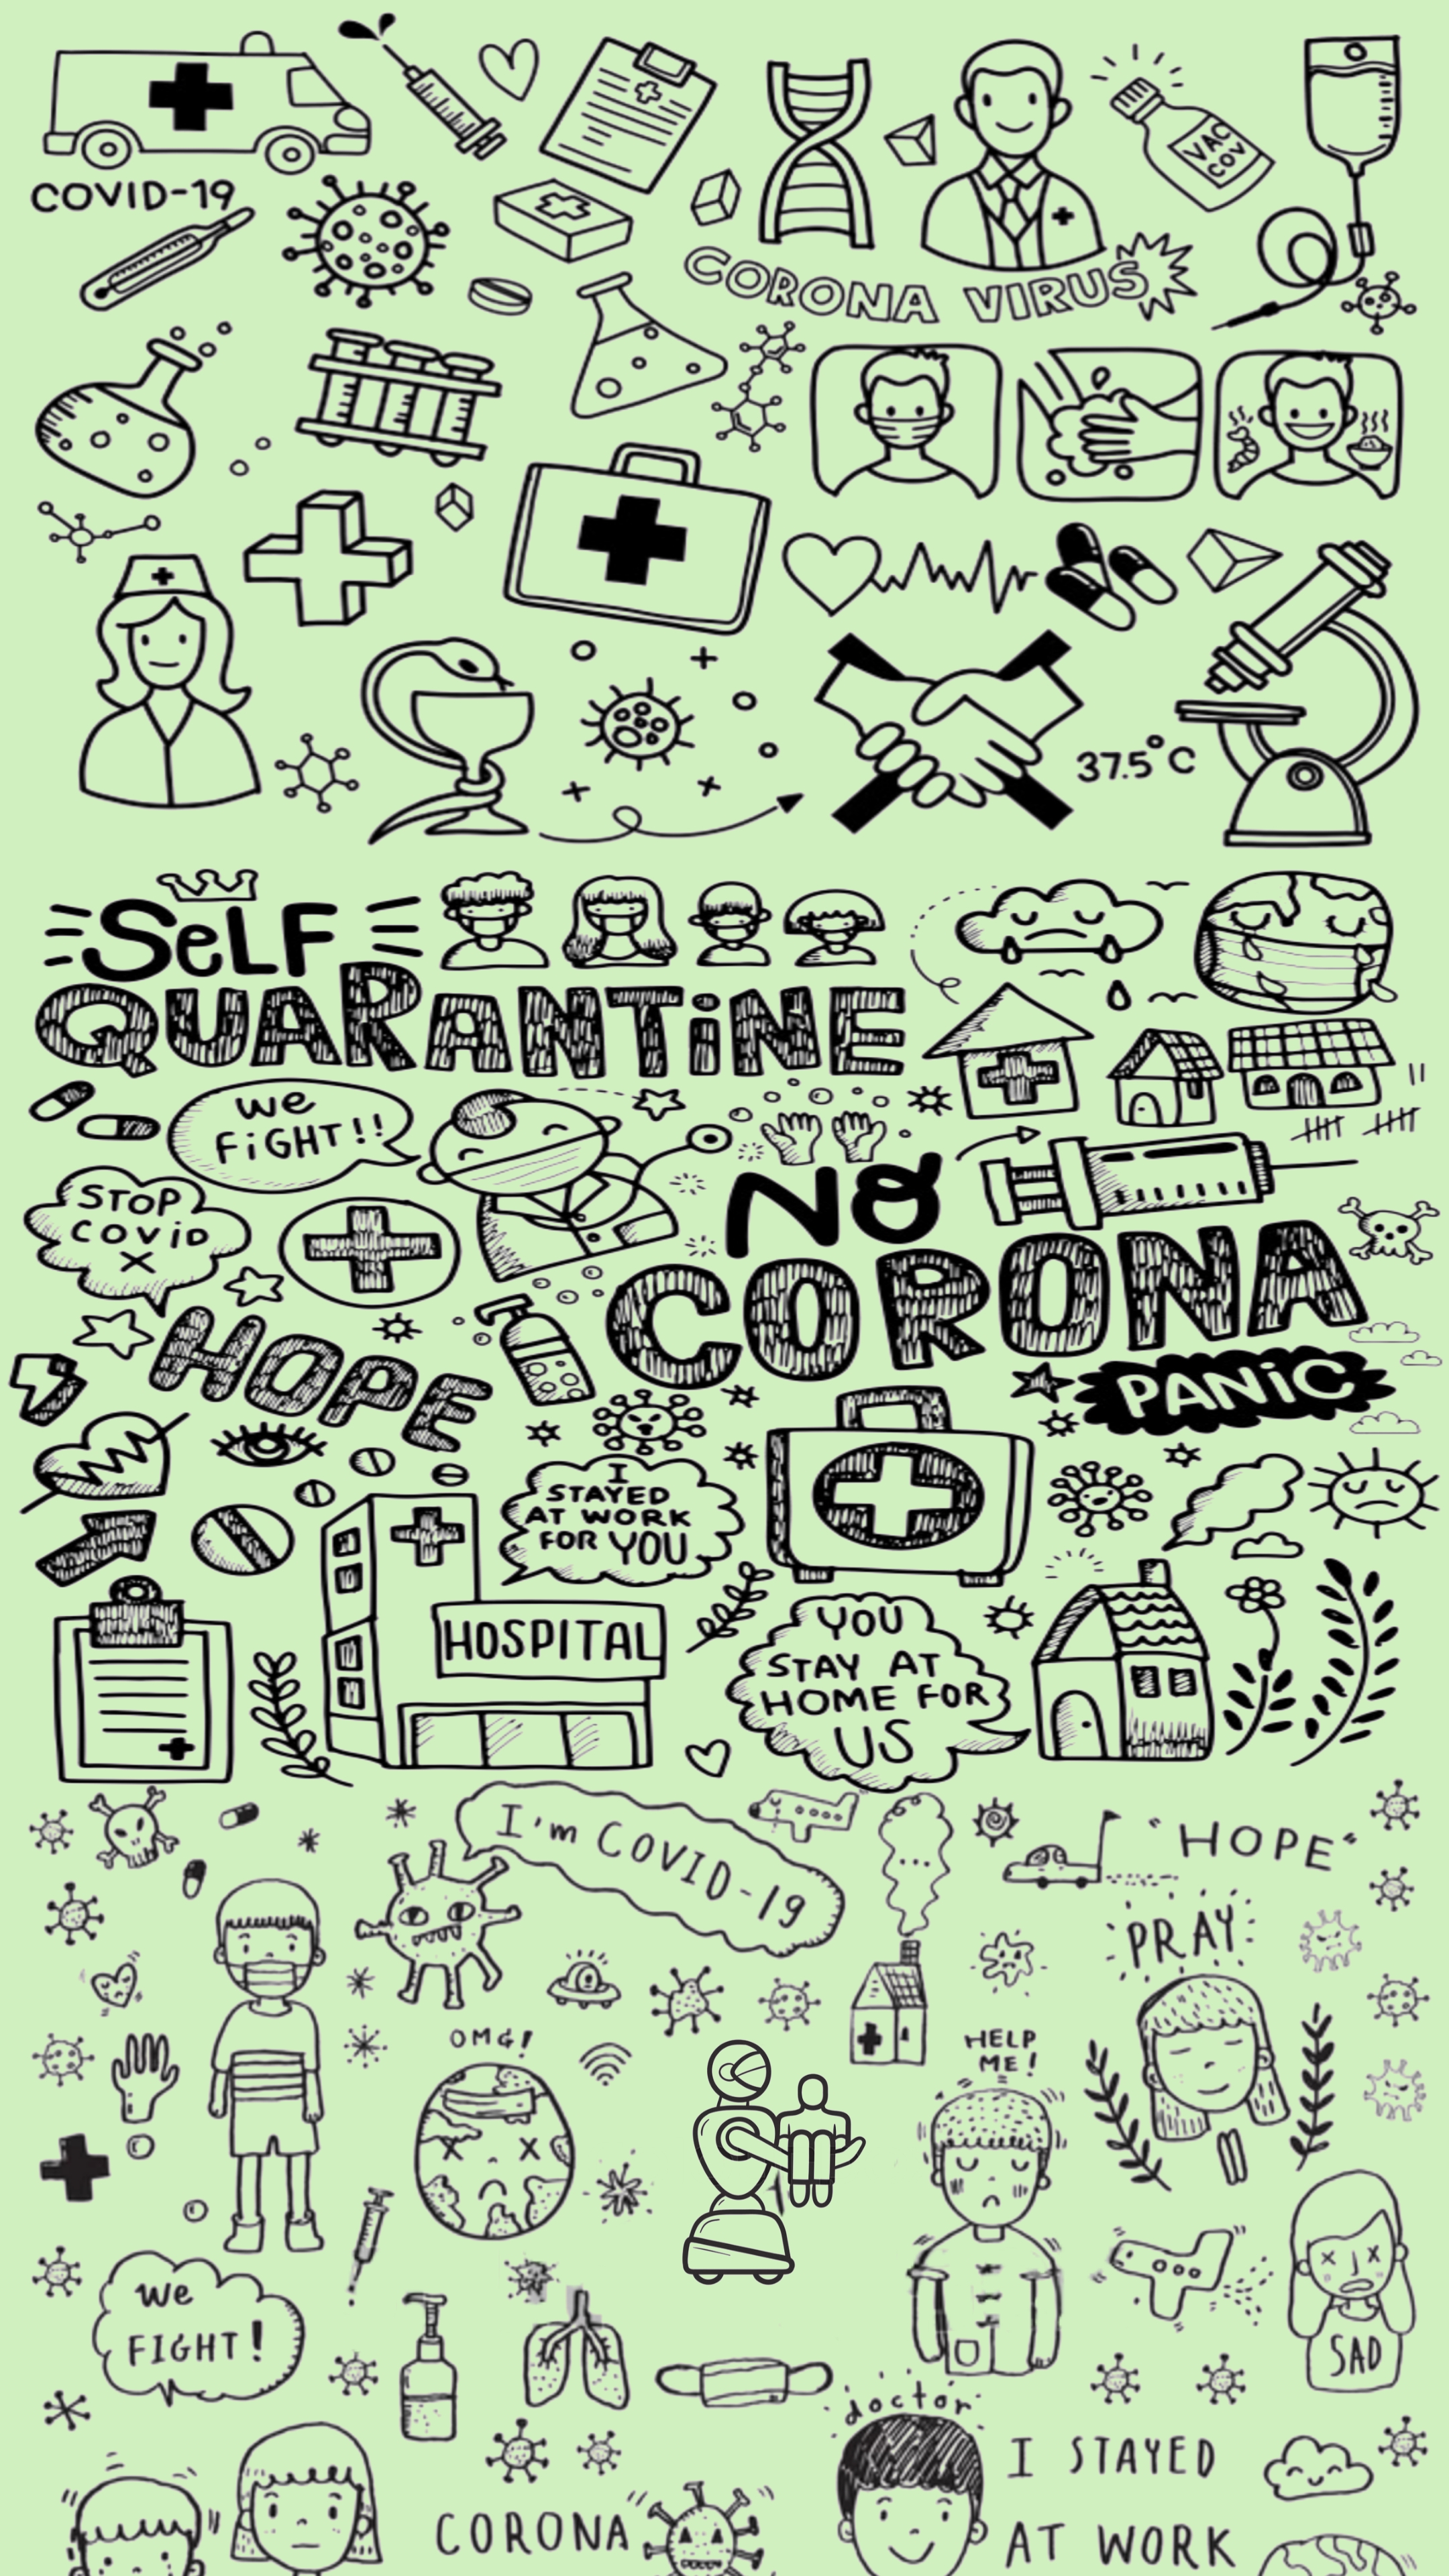 COVID-19
VAC
COV
CORONA VIRUS
37.5°C
SeLF
QUARANTiNE
We
FiGHT!!
STOP
COViD
X
NO
CORONA
HOPE
PANiC
I
STAYED
AT WORK
FOR YOU
HOSPITAL
YOU
STAY AT
HOME FOR
US
I'm COVID-19
"HOPE"
PRAY
OMG!
HELP
ME!
We
FIGHT!
SAD
doctor
I STAYED
CORONA
AT WORK